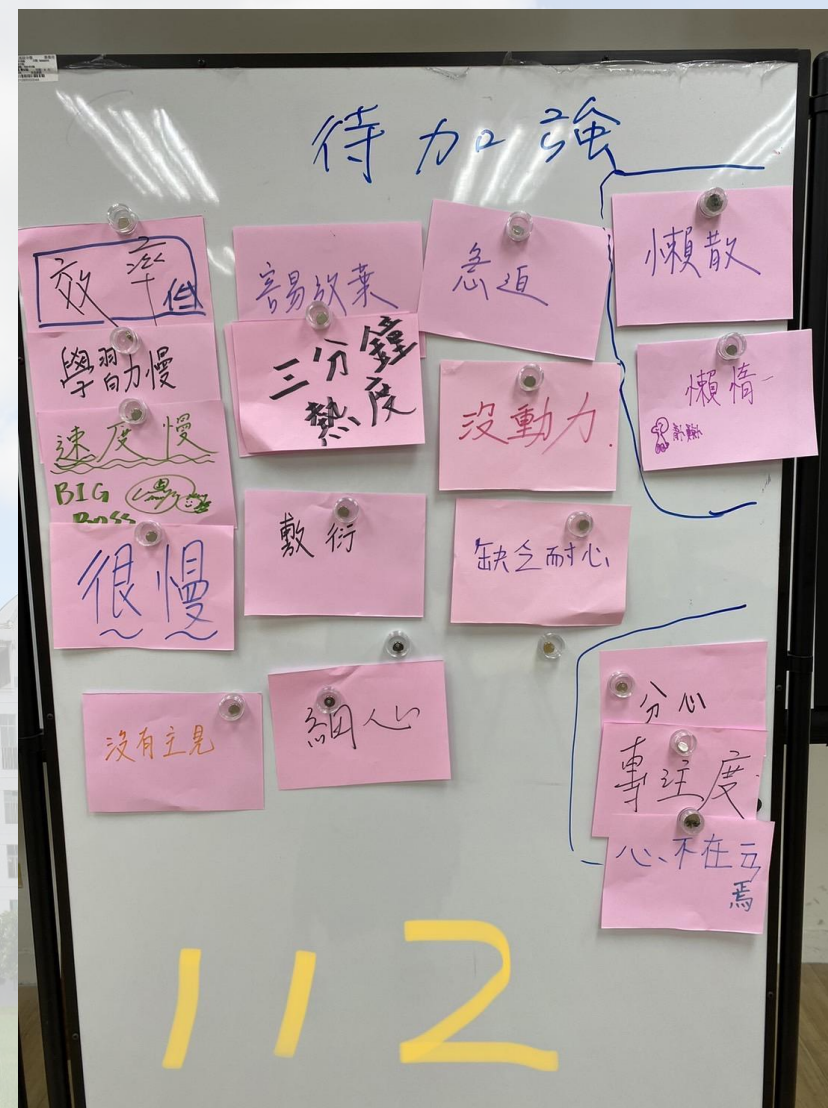 待加強
效率低
學習力慢
速度慢
BIG
BOSS
很慢
容易放棄
三分鐘
熱度
敷衍
急迫
沒動力.
缺乏耐心
懶散
懶惰
沒有主見
細心
分心
專注度
心不在
焉
112